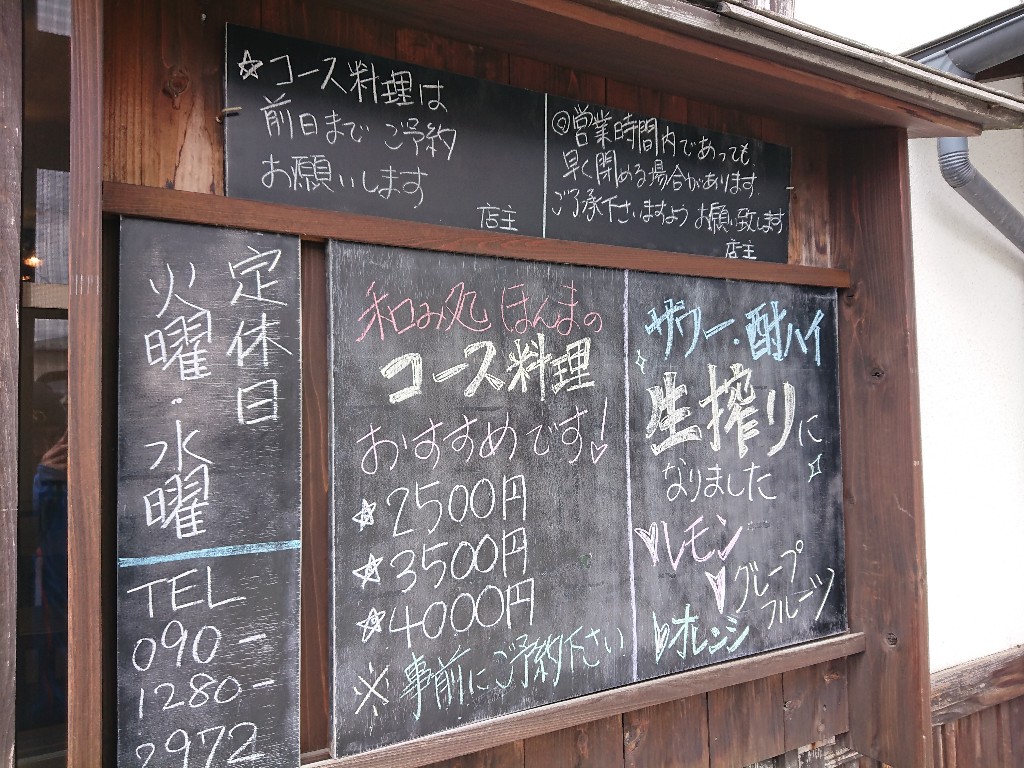 ☆コース料理は
前日まで ご予約
お願いします
店主
◎営業時間内であっても、
早く閉める場合があります。
ご了承下さいますよう お願い致します
店主
定休日
火曜・水曜
TEL
090-
1280-
2972
和み処 ほんまの
コース料理
おすすめです!
☆2500円
☆3500円
☆4000円
※事前にご予約下さい
サワー・酎ハイ
生搾りに
なりました
レモン
グレープ
フルーツ
オレンジ